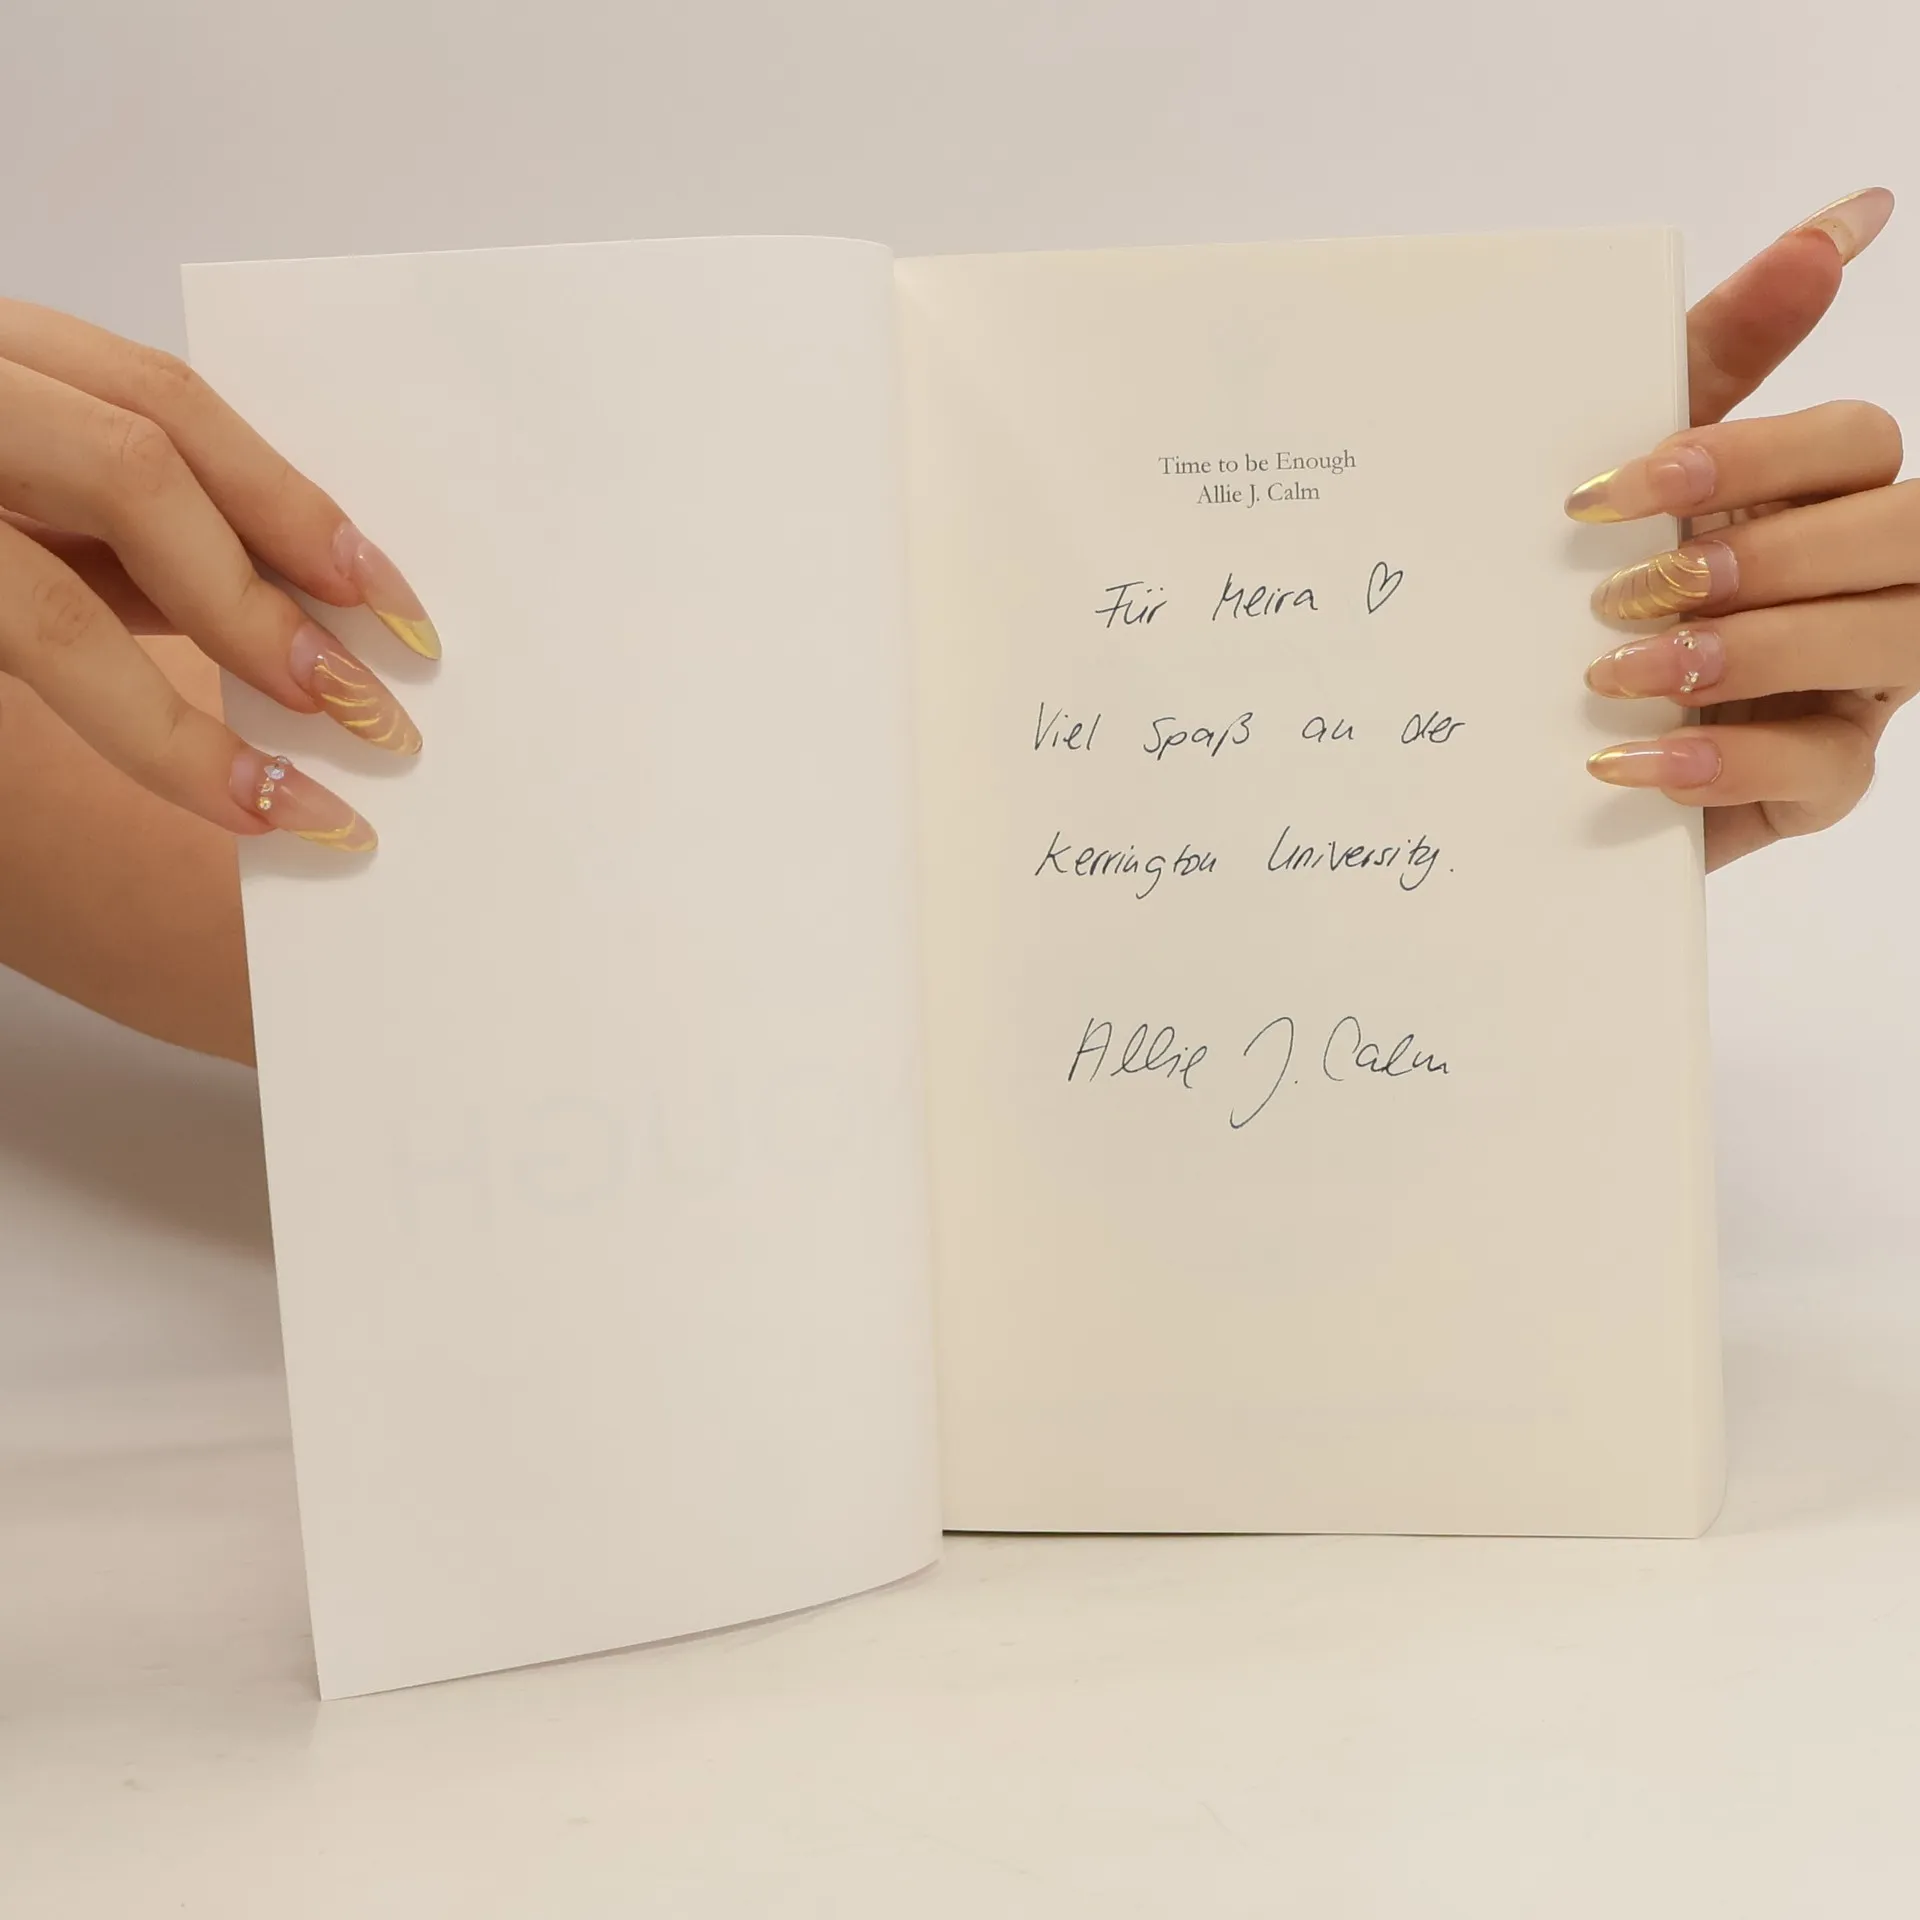 Time to be Enough
Allie J. Calm
Für Meira ♡
Viel Spaß an der
Kerrington University.
Allie J. Calm